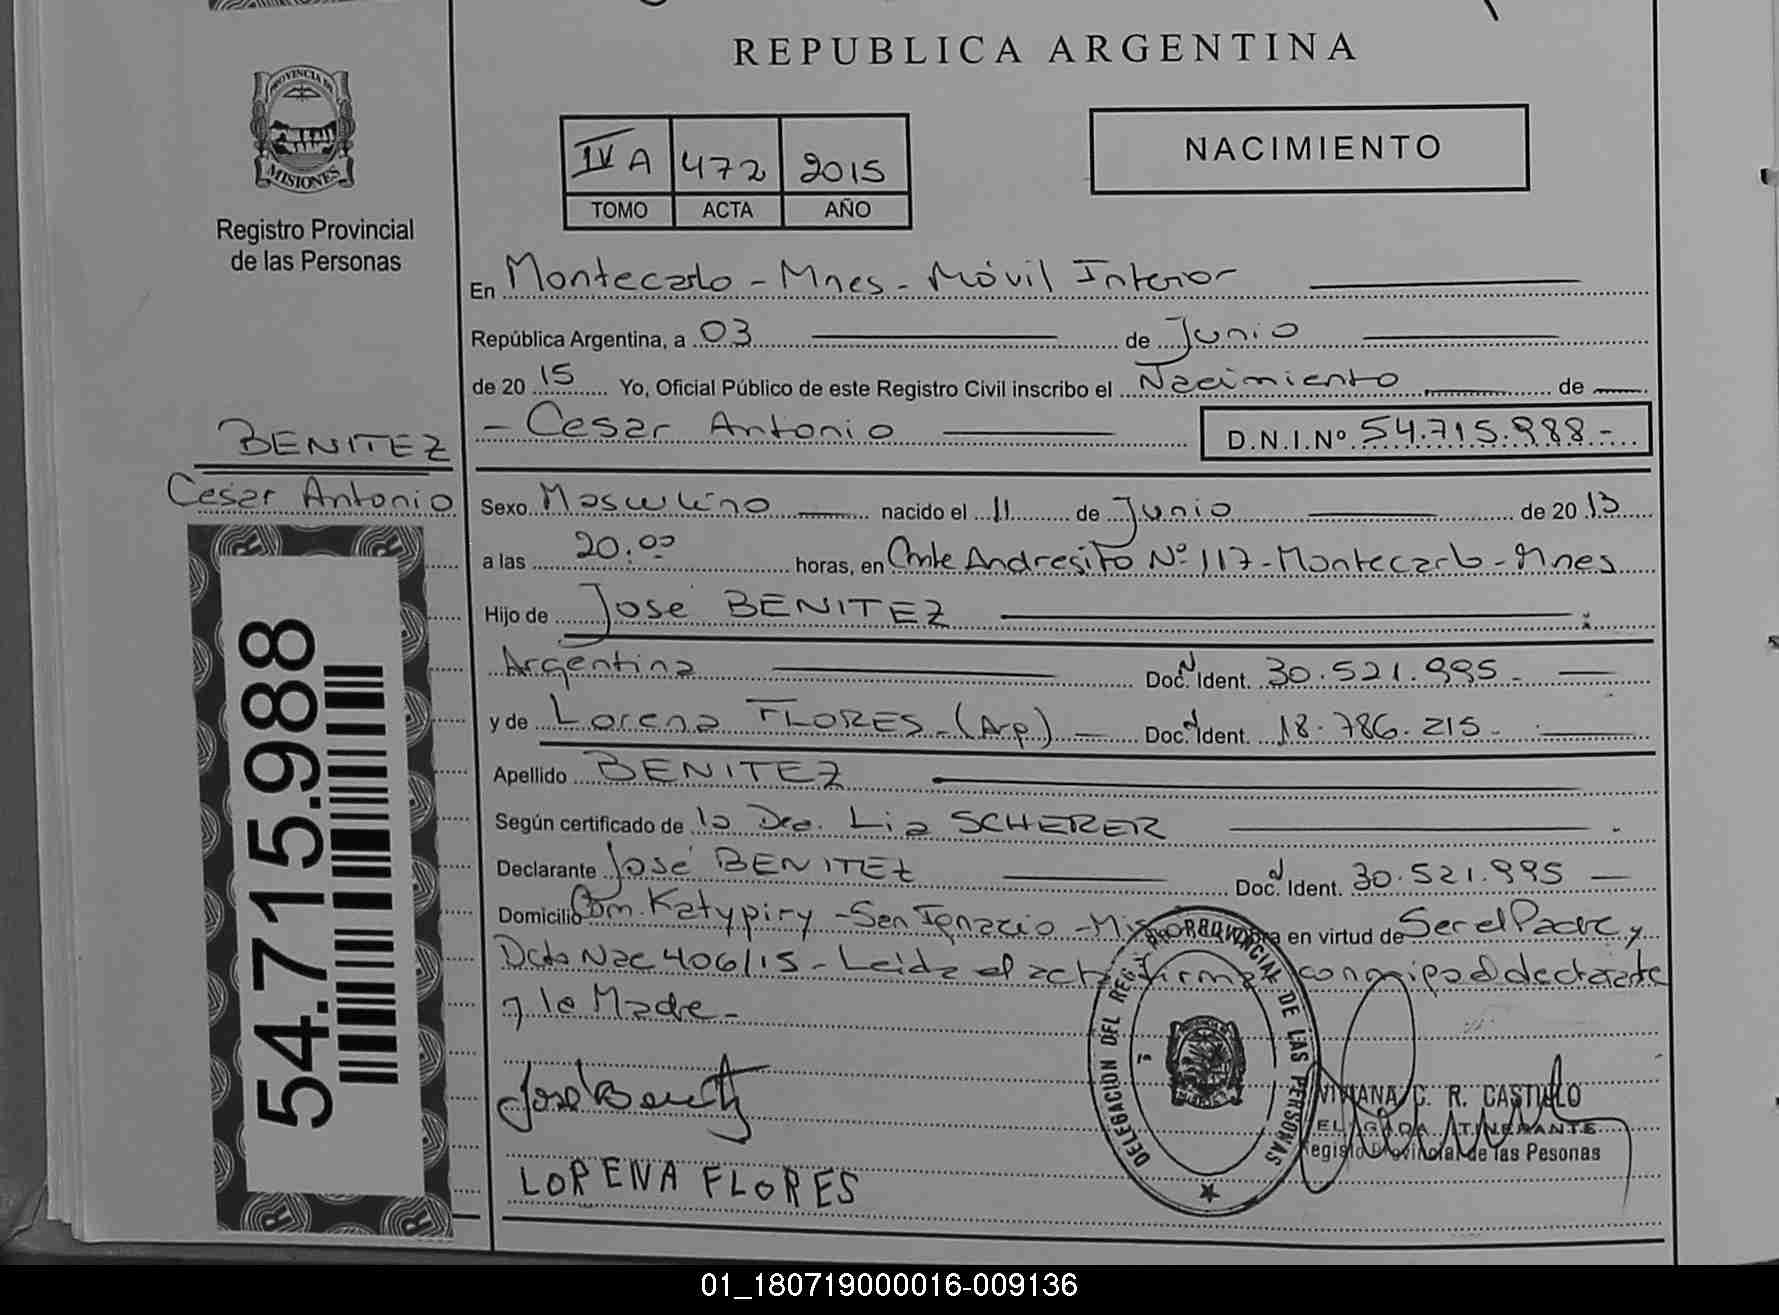 REPUBLICA ARGENTINA
PROVINCIA DE
MISIONES
Registro Provincial
de las Personas
IV A 472 2015
TOMO ACTA AÑO
NACIMIENTO
En Montecarlo - Mnes - Móvil Interior
República Argentina, a 03 de Junio
de 20 15 Yo, Oficial Público de este Registro Civil inscribo el Nacimiento de
- Cesar Antonio D.N.I.Nº 54.715.988-
BENITEZ
Cesar Antonio
54.715.988
Sexo Masculino nacido el 11 de Junio de 20 13
a las 20:00 horas, en Cmte Andresito Nº 117 - Montecarlo - Mnes
Hijo de José BENITEZ
Argentina Doc. Ident. 30.521.995-
y de Lorena FLORES - (Arg) - Doc. Ident. 18.786.215-
Apellido BENITEZ
Según certificado de la Dra. Lia SCHERER
Declarante José BENITEZ Doc. Ident. 30.521.995
Domicilio Com. Katypiry - San Ignacio - en virtud de Ser el Padre y
Dcto Nac 406/15 - Leida el acta firma conmigo el declarante
y la Madre -
José Benitez
LORENA FLORES
DELEGACION DEL REG. PROVINCIAL DE LAS PERSONAS
VIVIANA C. R. CASTILLO
ITINERANTE
Registro Provincial de las Pesonas
01_180719000016-009136